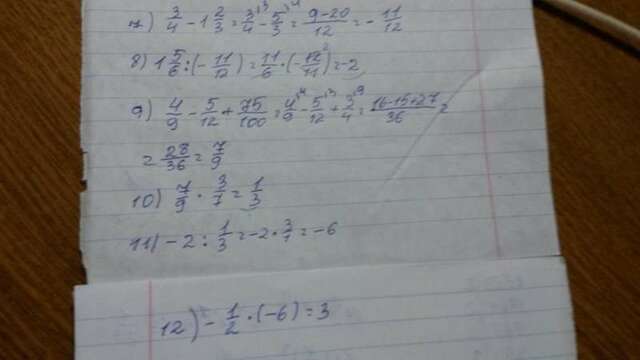 7) 3/4 - 1 2/3 = 3/4 - 5/3 = (9-20)/12 = - 11/12
8) 1 5/6 : (- 11/12) = 11/6 · (- 12/11) = -2
9) 4/9 - 5/12 + 75/100 = 4/9 - 5/12 + 3/4 = (16-15+27)/36 =
= 28/36 = 7/9
10) 7/9 · 3/7 = 1/3
11) - 2 : 1/3 = -2 · 3/1 = -6
12) - 1/2 · (-6) = 3